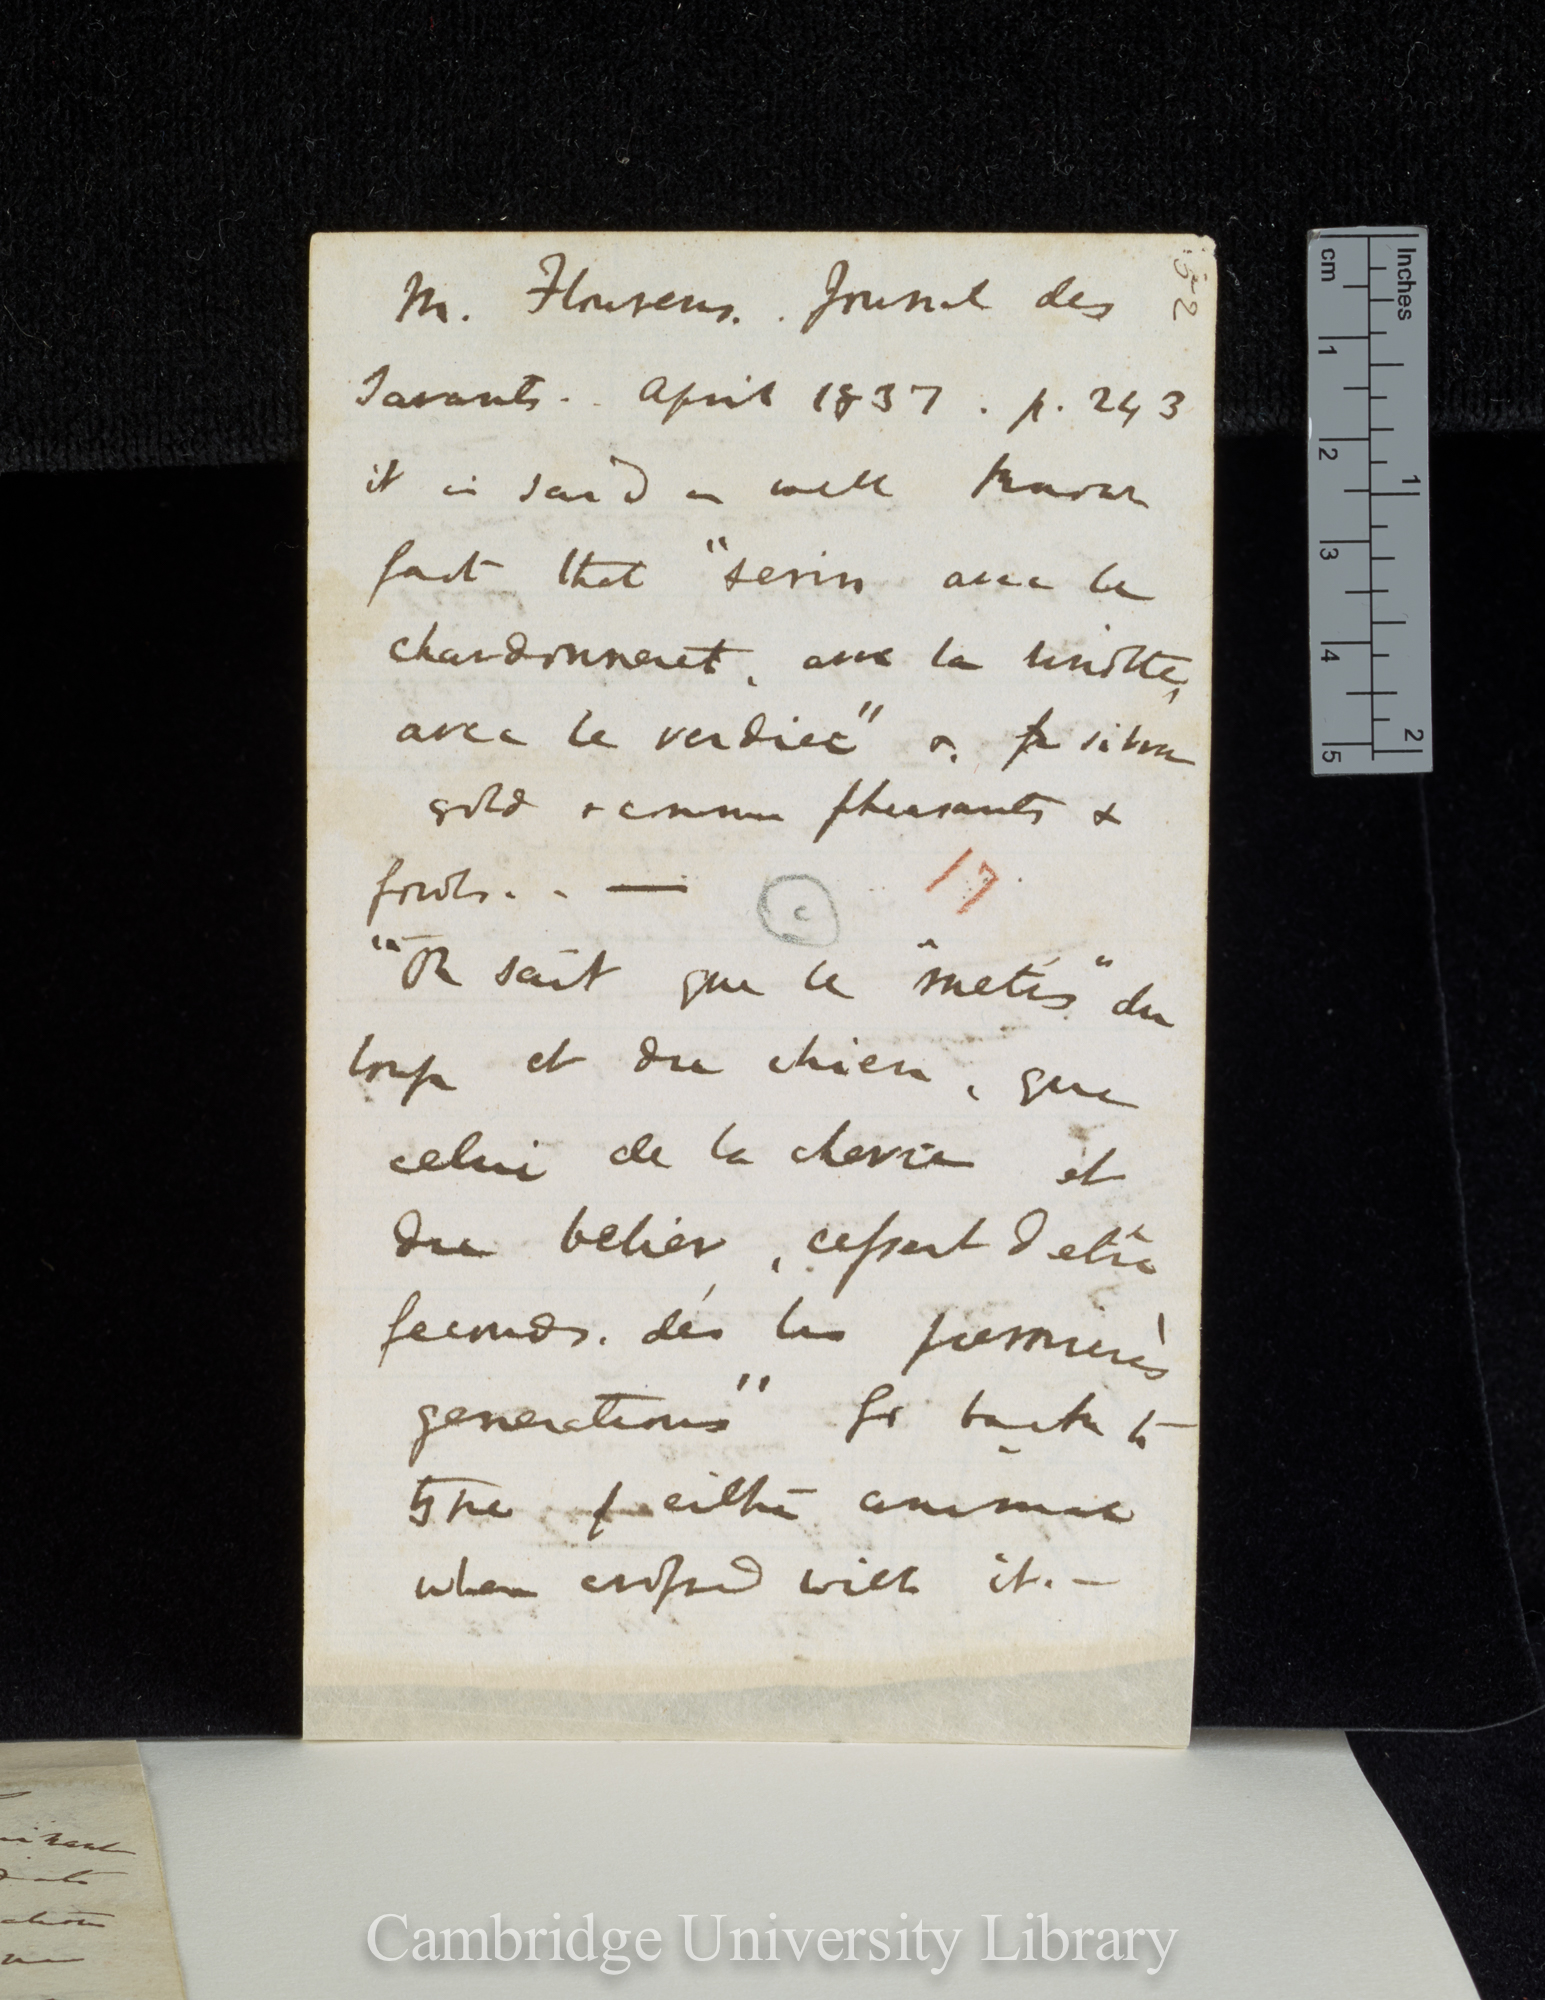 52
M. Flourens. . Journal des
Savants. . April 1837 . p. 243
it is said as well known
fact that "serin avec le
chardonneret, avec la linotte,
avec le verdier" & silver
gold & common pheasants &
fowls. . —
c
17
"On sait que le "metis" du
loup et du chien, que
celui de la chevre et
du belier, cessent d'etre
feconds. dès les premières
generations" Go back to
type of either animal
when crossed with it. —
cm 1 2 3 4 5
Inches 1 2
Cambridge University Library